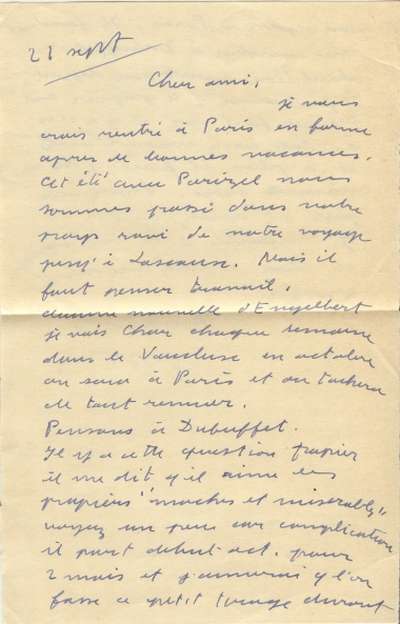 22 sept
Cher ami,
je vous
crois rentré à Paris en forme
après de bonnes vacances.
Cet été avec nous
sommes passé dans votre
ravi de notre voyage
jusq'à Lascaux. Mais il
faut penser travail.
aucune nouvelle d'Engelbert
je vais Char chaque semaine
dans le Vaucluse en octobre
on sera à Paris et on tachera
de tout remuer.
Pensons à Dubuffet.
Il y a cette question papier
il me dit q'il aime les
papiers "moches et misérables"
voyez un peu car complication
il part début oct. pour
2 mois et j'aimerais q l'on
fasse ce petit tirage durant